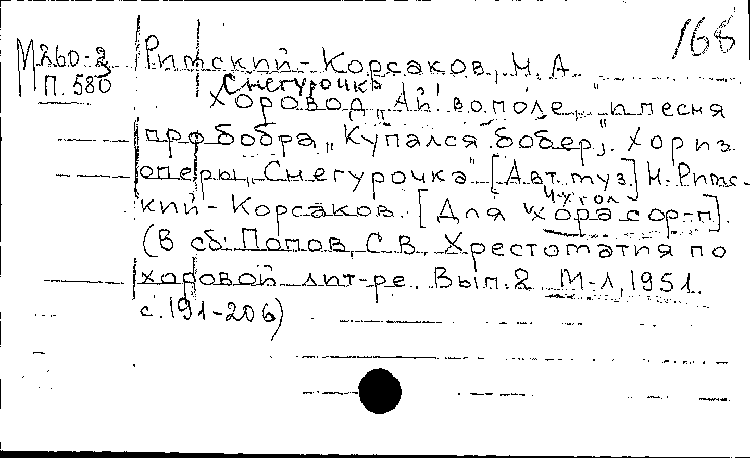 168
М260-2
П. 580
Римский-Корсаков, Н. А.
Снегурочка
Хоровод „Ай! во поле“, и песня
про бобра „Купался бобер“. Хор из
оперы „Снегурочка“ [Авт. муз.] Н. Римс-
кий-Корсаков. [Для хора с ф-п].
(В сб: Попов, С. В. Хрестоматия по
хоровой лит-ре. Вып. 2 М-Л, 1951.
с. 191-206)